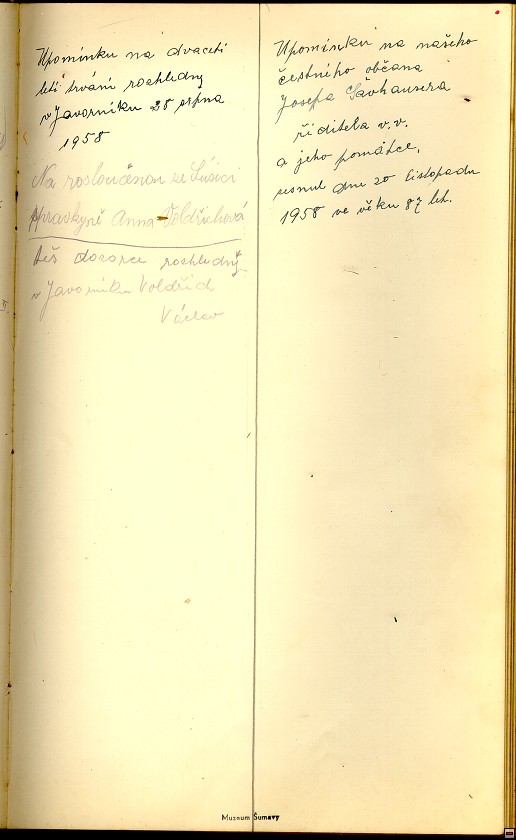 Upomínku na dvaceti
leté trvání rozhledny
v Javorníku 28 srpna
1958
Na rozloučenou ze
správkyně Anna Voldřichová
též dozorce rozhledny
v Javorníku Voldřich
Václav
Upomínku na našeho
čestného občana
Josefa
řiditela v.v.
a jeho památce,
zesnul dne 20 listopadu
1958 ve věku 87 let.
Muzeum Šumavy